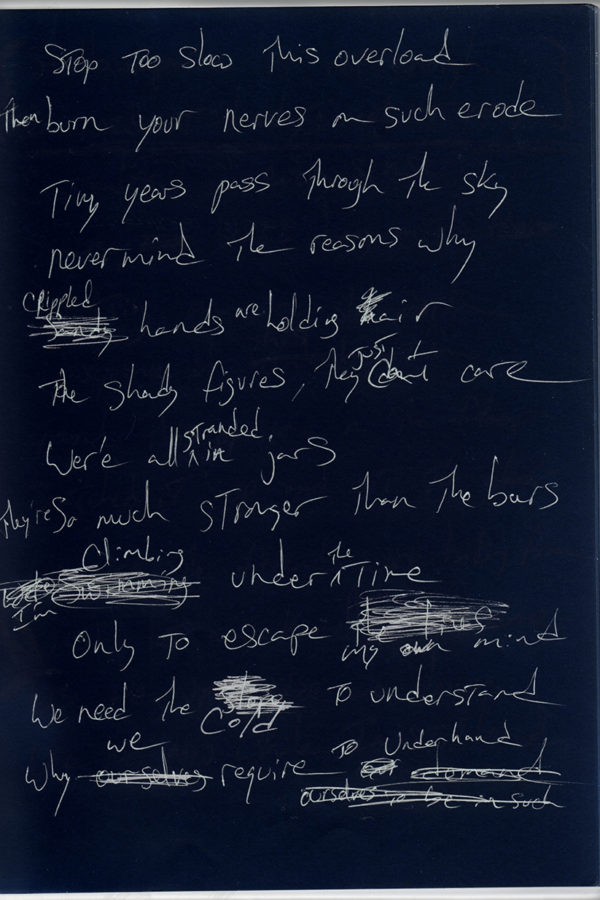 Stop too slow this overload
Then burn your nerves in such erode
Tiny years pass through the sky
nevermind the reasons why
Crippled hands are holding air
The shady figures, they just don't care
We're all stranded in jars
They're so much stronger than the bars
I'm Climbing under the Time
Only to escape my own mind
We need the Cold to understand
why we require to underhand
ourselves to be in such